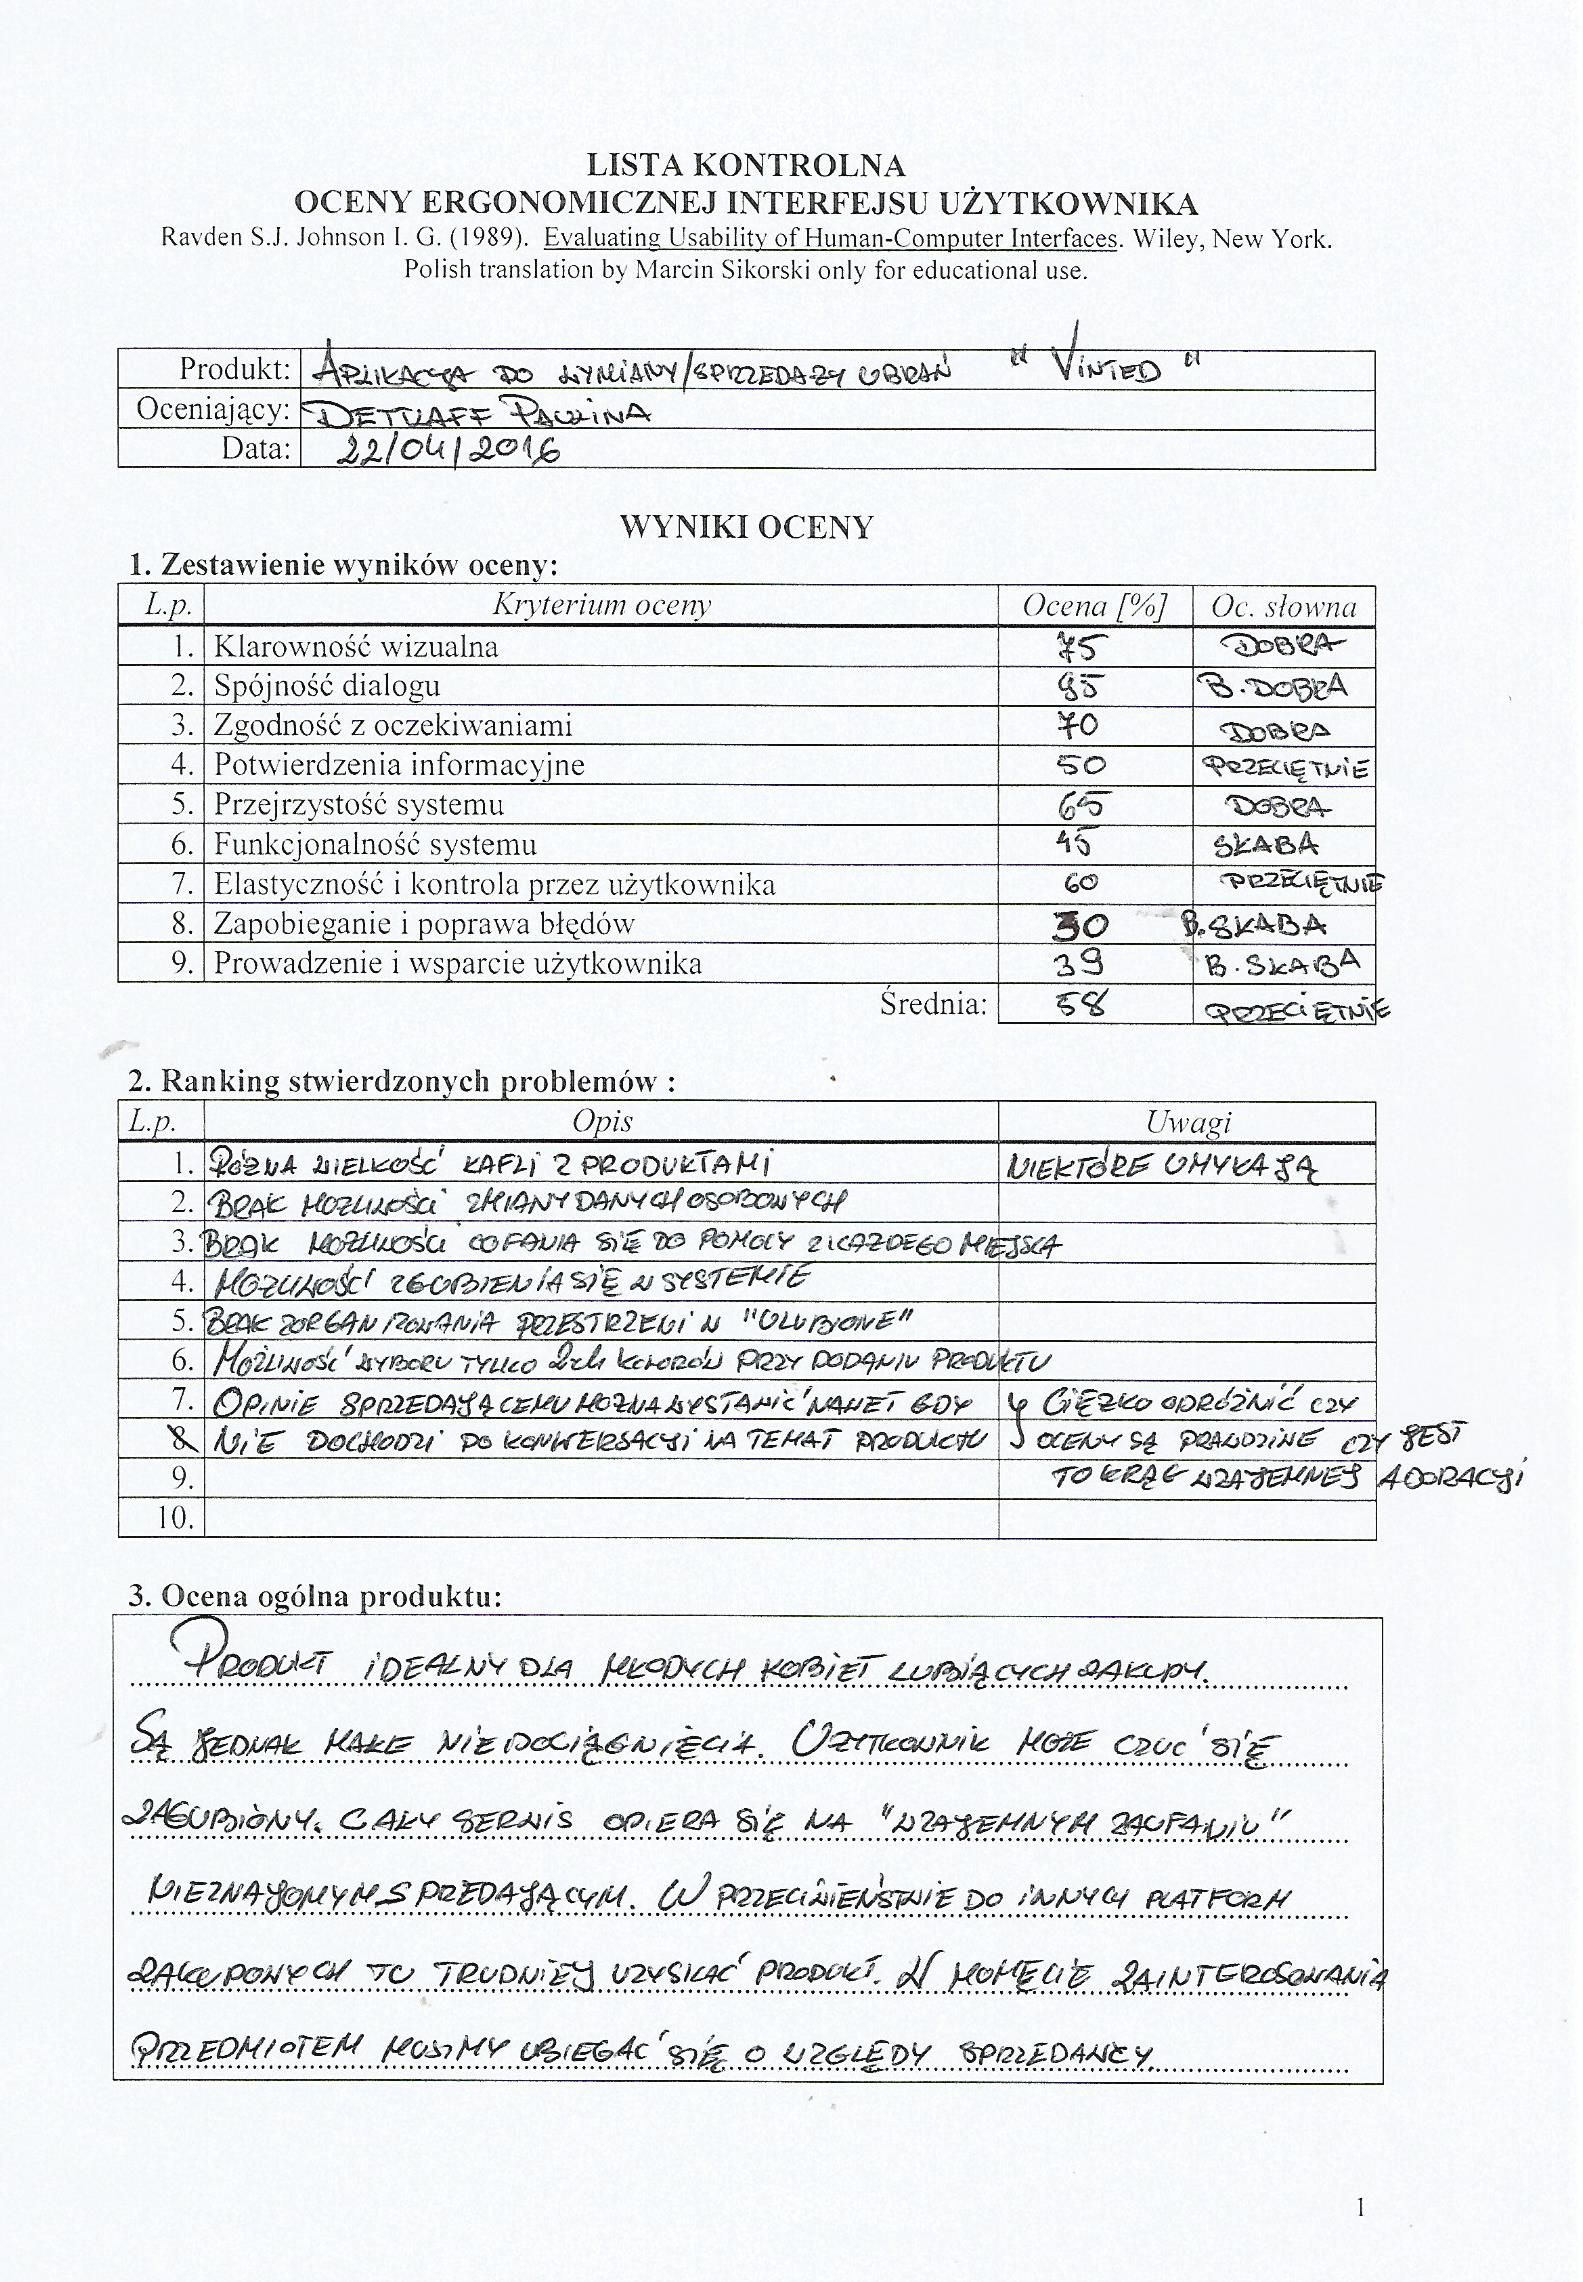 LISTA KONTROLNA
OCENY ERGONOMICZNEJ INTERFEJSU UŻYTKOWNIKA
Ravden S.J. Johnson I. G. (1989). Evaluating Usability of Human-Computer Interfaces. Wiley, New York.
Polish translation by Marcin Sikorski only for educational use.
Produkt: APLIKACJA DO WYMIANY/SPRZEDAZY UBRAŃ " VINTED "
Oceniający: DETLAFF PAULINA
Data: 22/04/2016
WYNIKI OCENY
1. Zestawienie wyników oceny:
L.p. Kryterium oceny Ocena [%] Oc. słowna
1. Klarowność wizualna 75 DOBRA
2. Spójność dialogu B. DOBRA
3. Zgodność z oczekiwaniami 70 DOBRA
4. Potwierdzenia informacyjne 50 PRZECIĘTNIE
5. Przejrzystość systemu 65 DOBRA
6. Funkcjonalność systemu 45 SŁABA
7. Elastyczność i kontrola przez użytkownika 60 PRZECIĘTNIE
8. Zapobieganie i poprawa błędów 30 B. SŁABA
9. Prowadzenie i wsparcie użytkownika 39 B. SŁABA
Średnia: 58 PRZECIĘTNIE
2. Ranking stwierdzonych problemów :
L.p. Opis Uwagi
1. RÓŻNA WIELKOŚĆ KAFLI Z PRODUKTAMI NIEKTÓRE UMYKAJĄ
2. BRAK MOŻLIWOŚCI ZMIANY DANYCH OSOBOWYCH
3. BRAK MOŻLIWOŚCI COFANIA SIĘ DO POMOCY Z KAŻDEGO MIEJSCA
4. MOŻLIWOŚCI ZGUBIENIA SIĘ W SYSTEMIE
5. BRAK ZORGANIZOWANIA PRZESTRZENI W "ULUBIONE"
6. MOŻLIWOŚĆ WYBORU TYLKO 2ch KOLORÓW PRZY DODANIU PRODUKTU
7. OPINIE SPRZEDAJĄCEMU MOZNA WYSTAWIĆ NAWET GDY CIĘZKO ODRÓŻNIĆ CZY
8. NIE DOCHODZI DO KONWERSACJI NA TEMAT PRODUKTU OCENY SĄ PRAWDZIWE CZY JEST
9. TO KRĄG WZAJEMNEJ ADORACJI
10.
3. Ocena ogólna produktu:
PRODUKT IDEALNY DLA MŁODYCH KOBIET LUBIĄCYCH ZAKUPY.
SĄ JEDNAK MAŁE NIEDOCIĄGNIĘCIA. UZYTKOWNIK MOZE CZUĆ SIĘ
ZAGUBIONY. CAŁY SERWIS OPIERA SIĘ NA "WZAJEMNYM ZAUFANIU"
NIEZNAJOMYM SPRZEDAJĄCYM. W PRZECIWIEŃSTWIE DO INNYCH PLATFORM
ZAKUPOWYCH TU TRUDNIEJ UZYSKAĆ PRODUKT. W MOMĘCIE ZAINTERESOWANIA
PRZEDMIOTEM MUSIMY UBIEGAĆ SIĘ O WZGLĘDY SPRZEDAWCY.
1